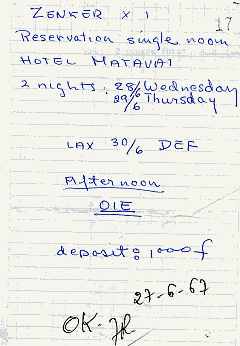 ZENKER x 1
17
Reservation single room
HOTEL MATAVAI
2 nights : 28/6 Wednesday
29/6 Thursday
LAX 30/6 DEF
Afternoon
OIE
deposit : 1000 f
27-6-67
OK.